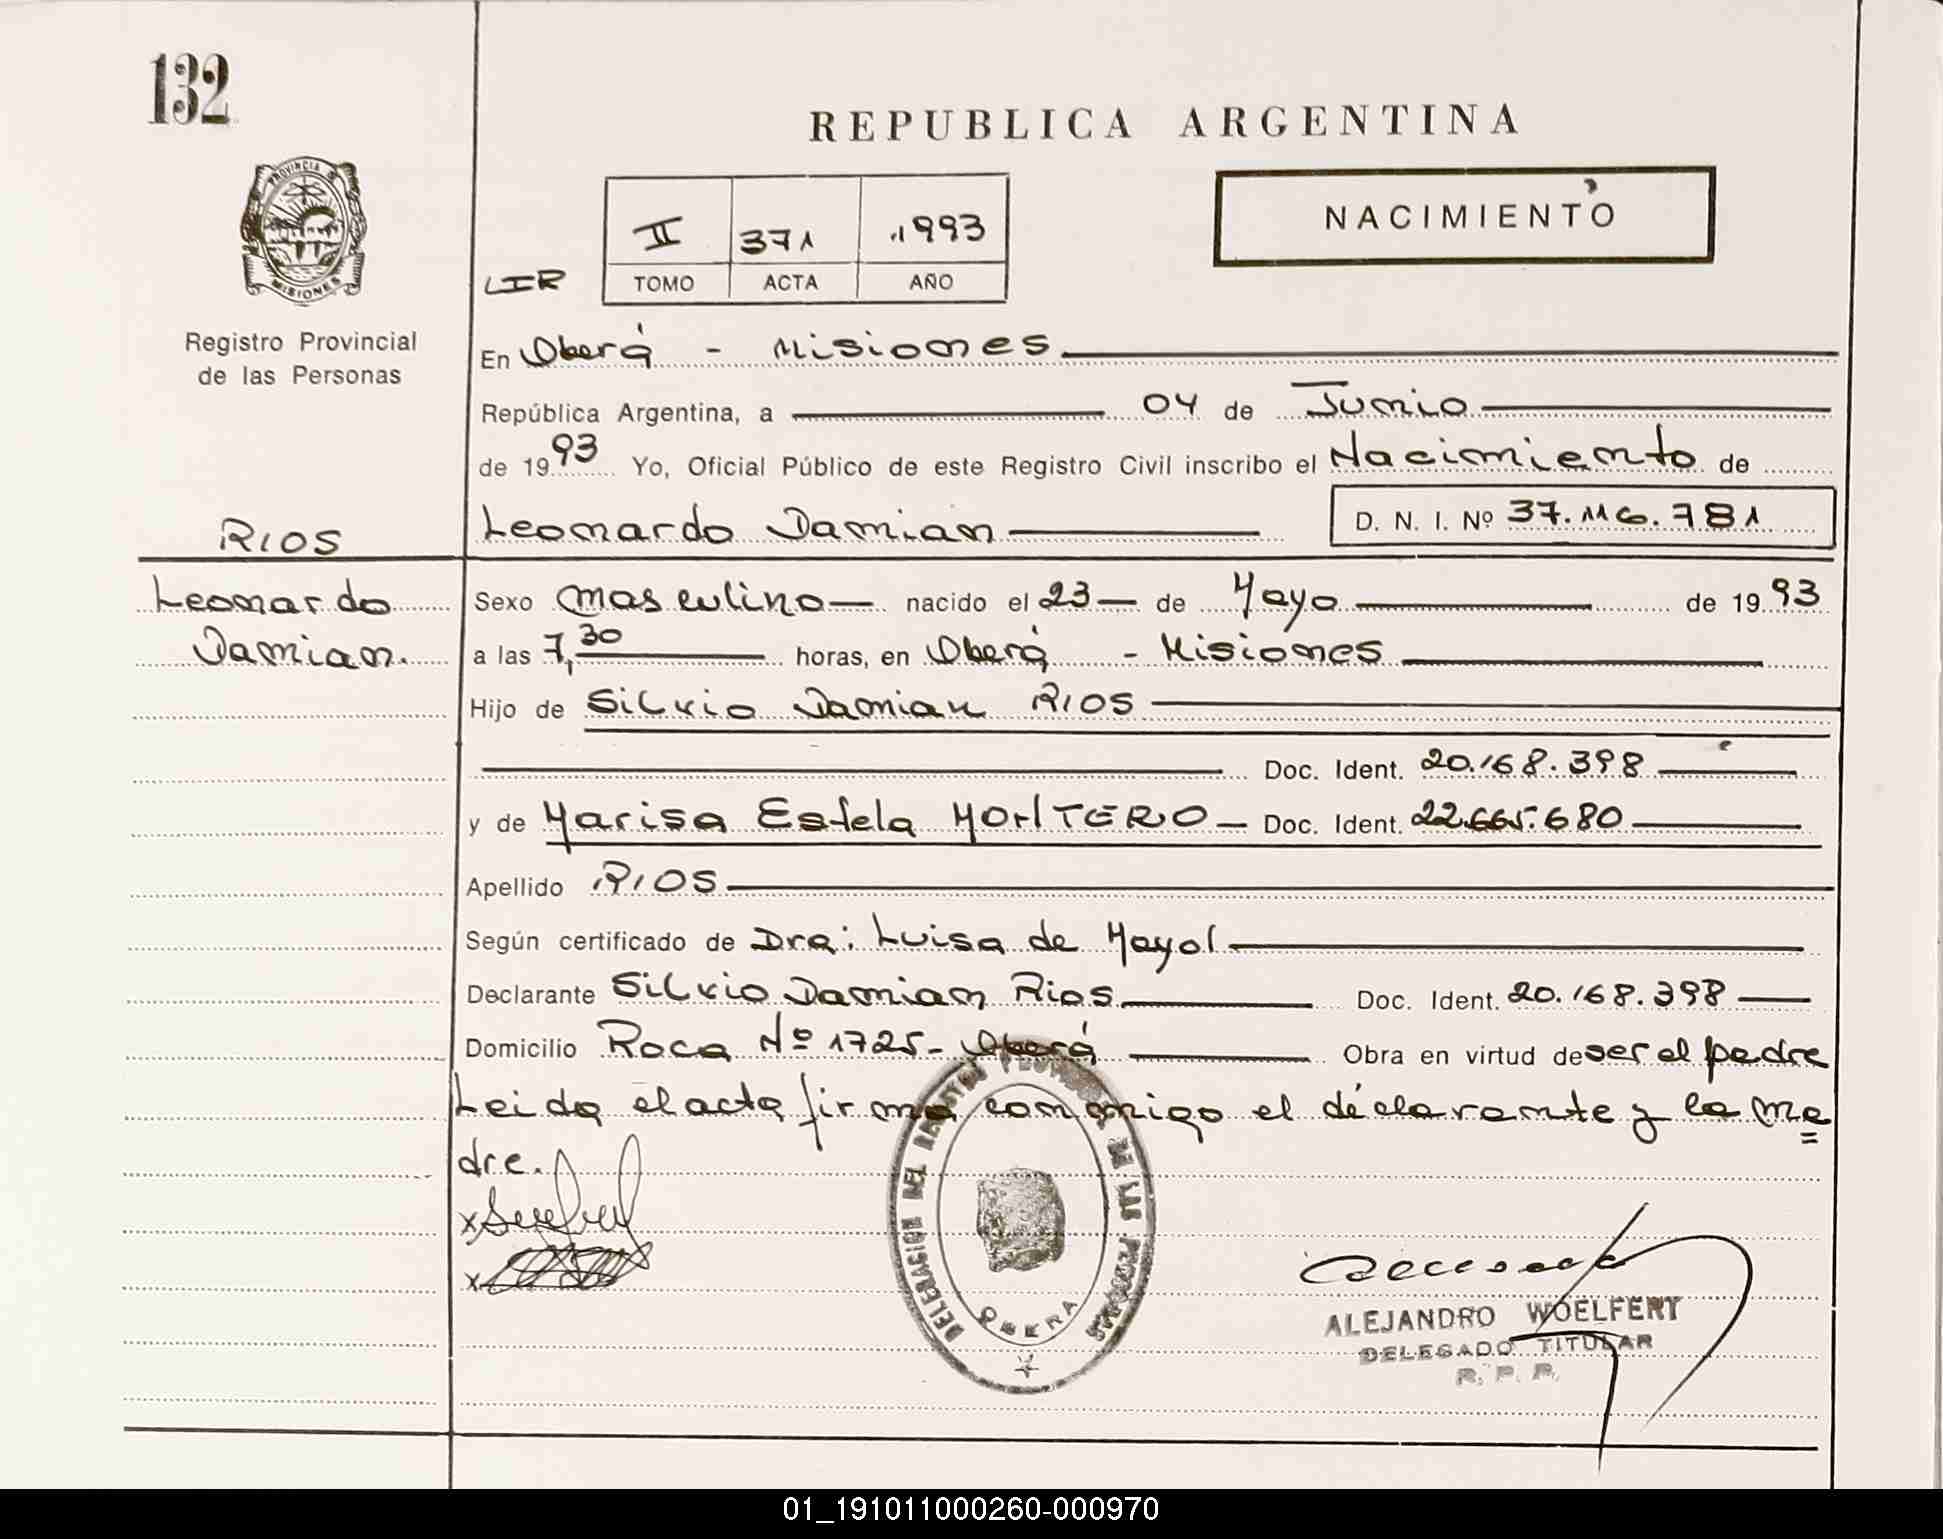 132
REPUBLICA ARGENTINA
PROVINCIA DE
MISIONES
Registro Provincial
de las Personas
LIR
II 371 1993
TOMO ACTA AÑO
NACIMIENTO
En Oberá - Misiones
República Argentina, a 04 de Junio
de 1993 Yo, Oficial Público de este Registro Civil inscribo el Nacimiento de
RIOS
Leonardo Damian
Leonardo Damian D. N. I. Nº 37.116.781
Sexo masculino nacido el 23 de Mayo de 1993
a las 7,30 horas, en Oberá - Misiones
Hijo de Silvio Damian RIOS
Doc. Ident. 20.168.398
y de Marisa Estela MONTERO Doc. Ident. 22.665.680
Apellido RIOS
Según certificado de Dra: Luisa de Mayol
Declarante Silvio Damian Rios Doc. Ident. 20.168.398
Domicilio Roca Nº 1725- Oberá Obra en virtud de ser el padre
Leida el acta firma conmigo el declarante y la ma
dre.
DELEGACION DEL REGISTRO PROVINCIAL DE LAS PERSONAS
OBERA
ALEJANDRO WOELFERT
DELEGADO TITULAR
R. P. P.
01_191011000260-000970